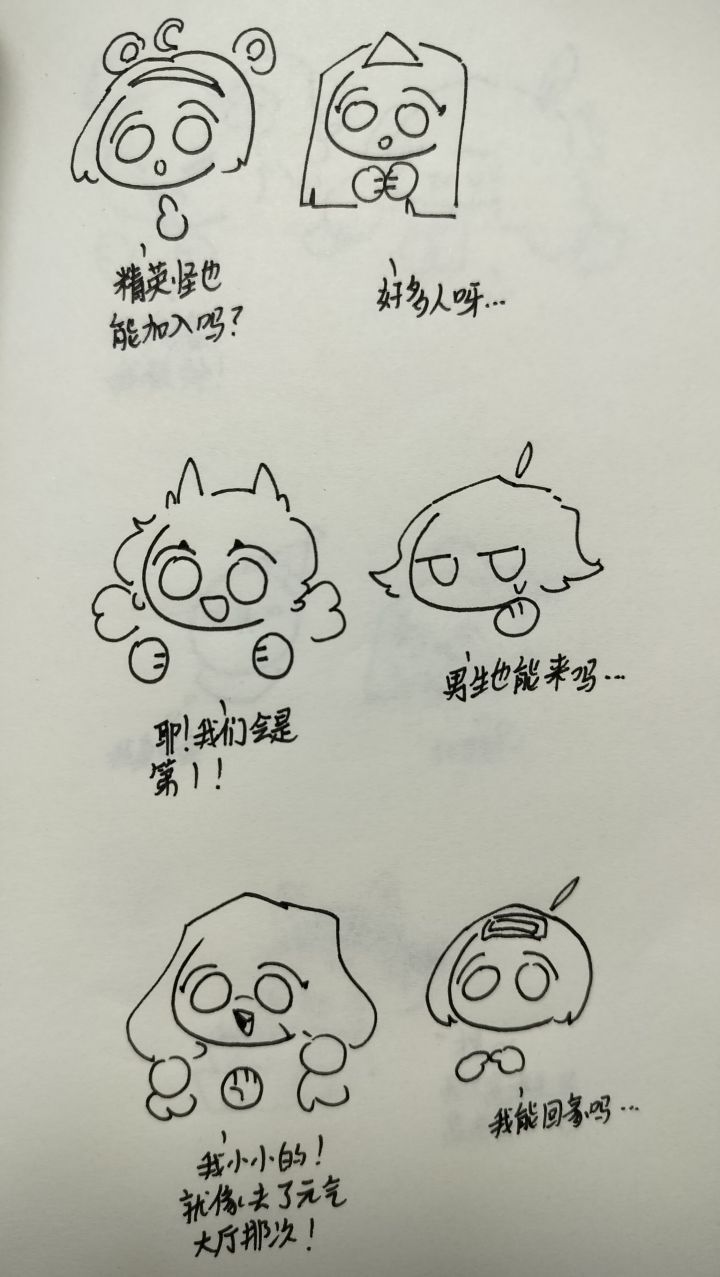 精英怪也
能加入吗?
好多人呀...
耶!我们会是
第1!
男生也能来吗...
我小小的!
就像去了元气
大厅那次!
我能回家吗...